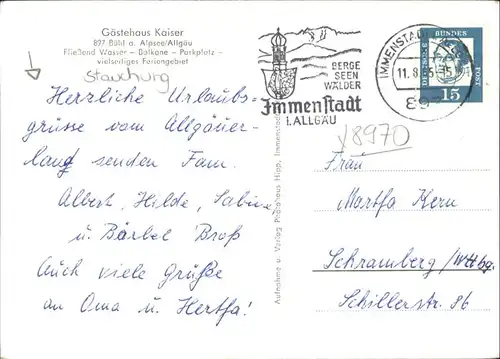 Gästehaus Kaiser
897 Bühl a. Alpsee/Allgäu
Fließend Wasser – Balkone – Parkplatz –
vielseitiges Feriengebiet
Stauchung
Herzliche Urlaubs-
grüsse vom Allgäuer-
land senden Fam.
Albert, Hilde, Sabine
u. Bärbel Broß
Auch viele Grüße
an Oma u. Hertha!
Aufnahme u. Verlag Photohaus Hipp, Immenstadt
BERGE
SEEN
WÄLDER
Immenstadt
i. ALLGÄU
IMMENSTADT
11.8.
897
DEUTSCHE BUNDESPOST
15
8970
Frau
Martha Kern
Schramberg/Wttbg.
Schillerstr. 86